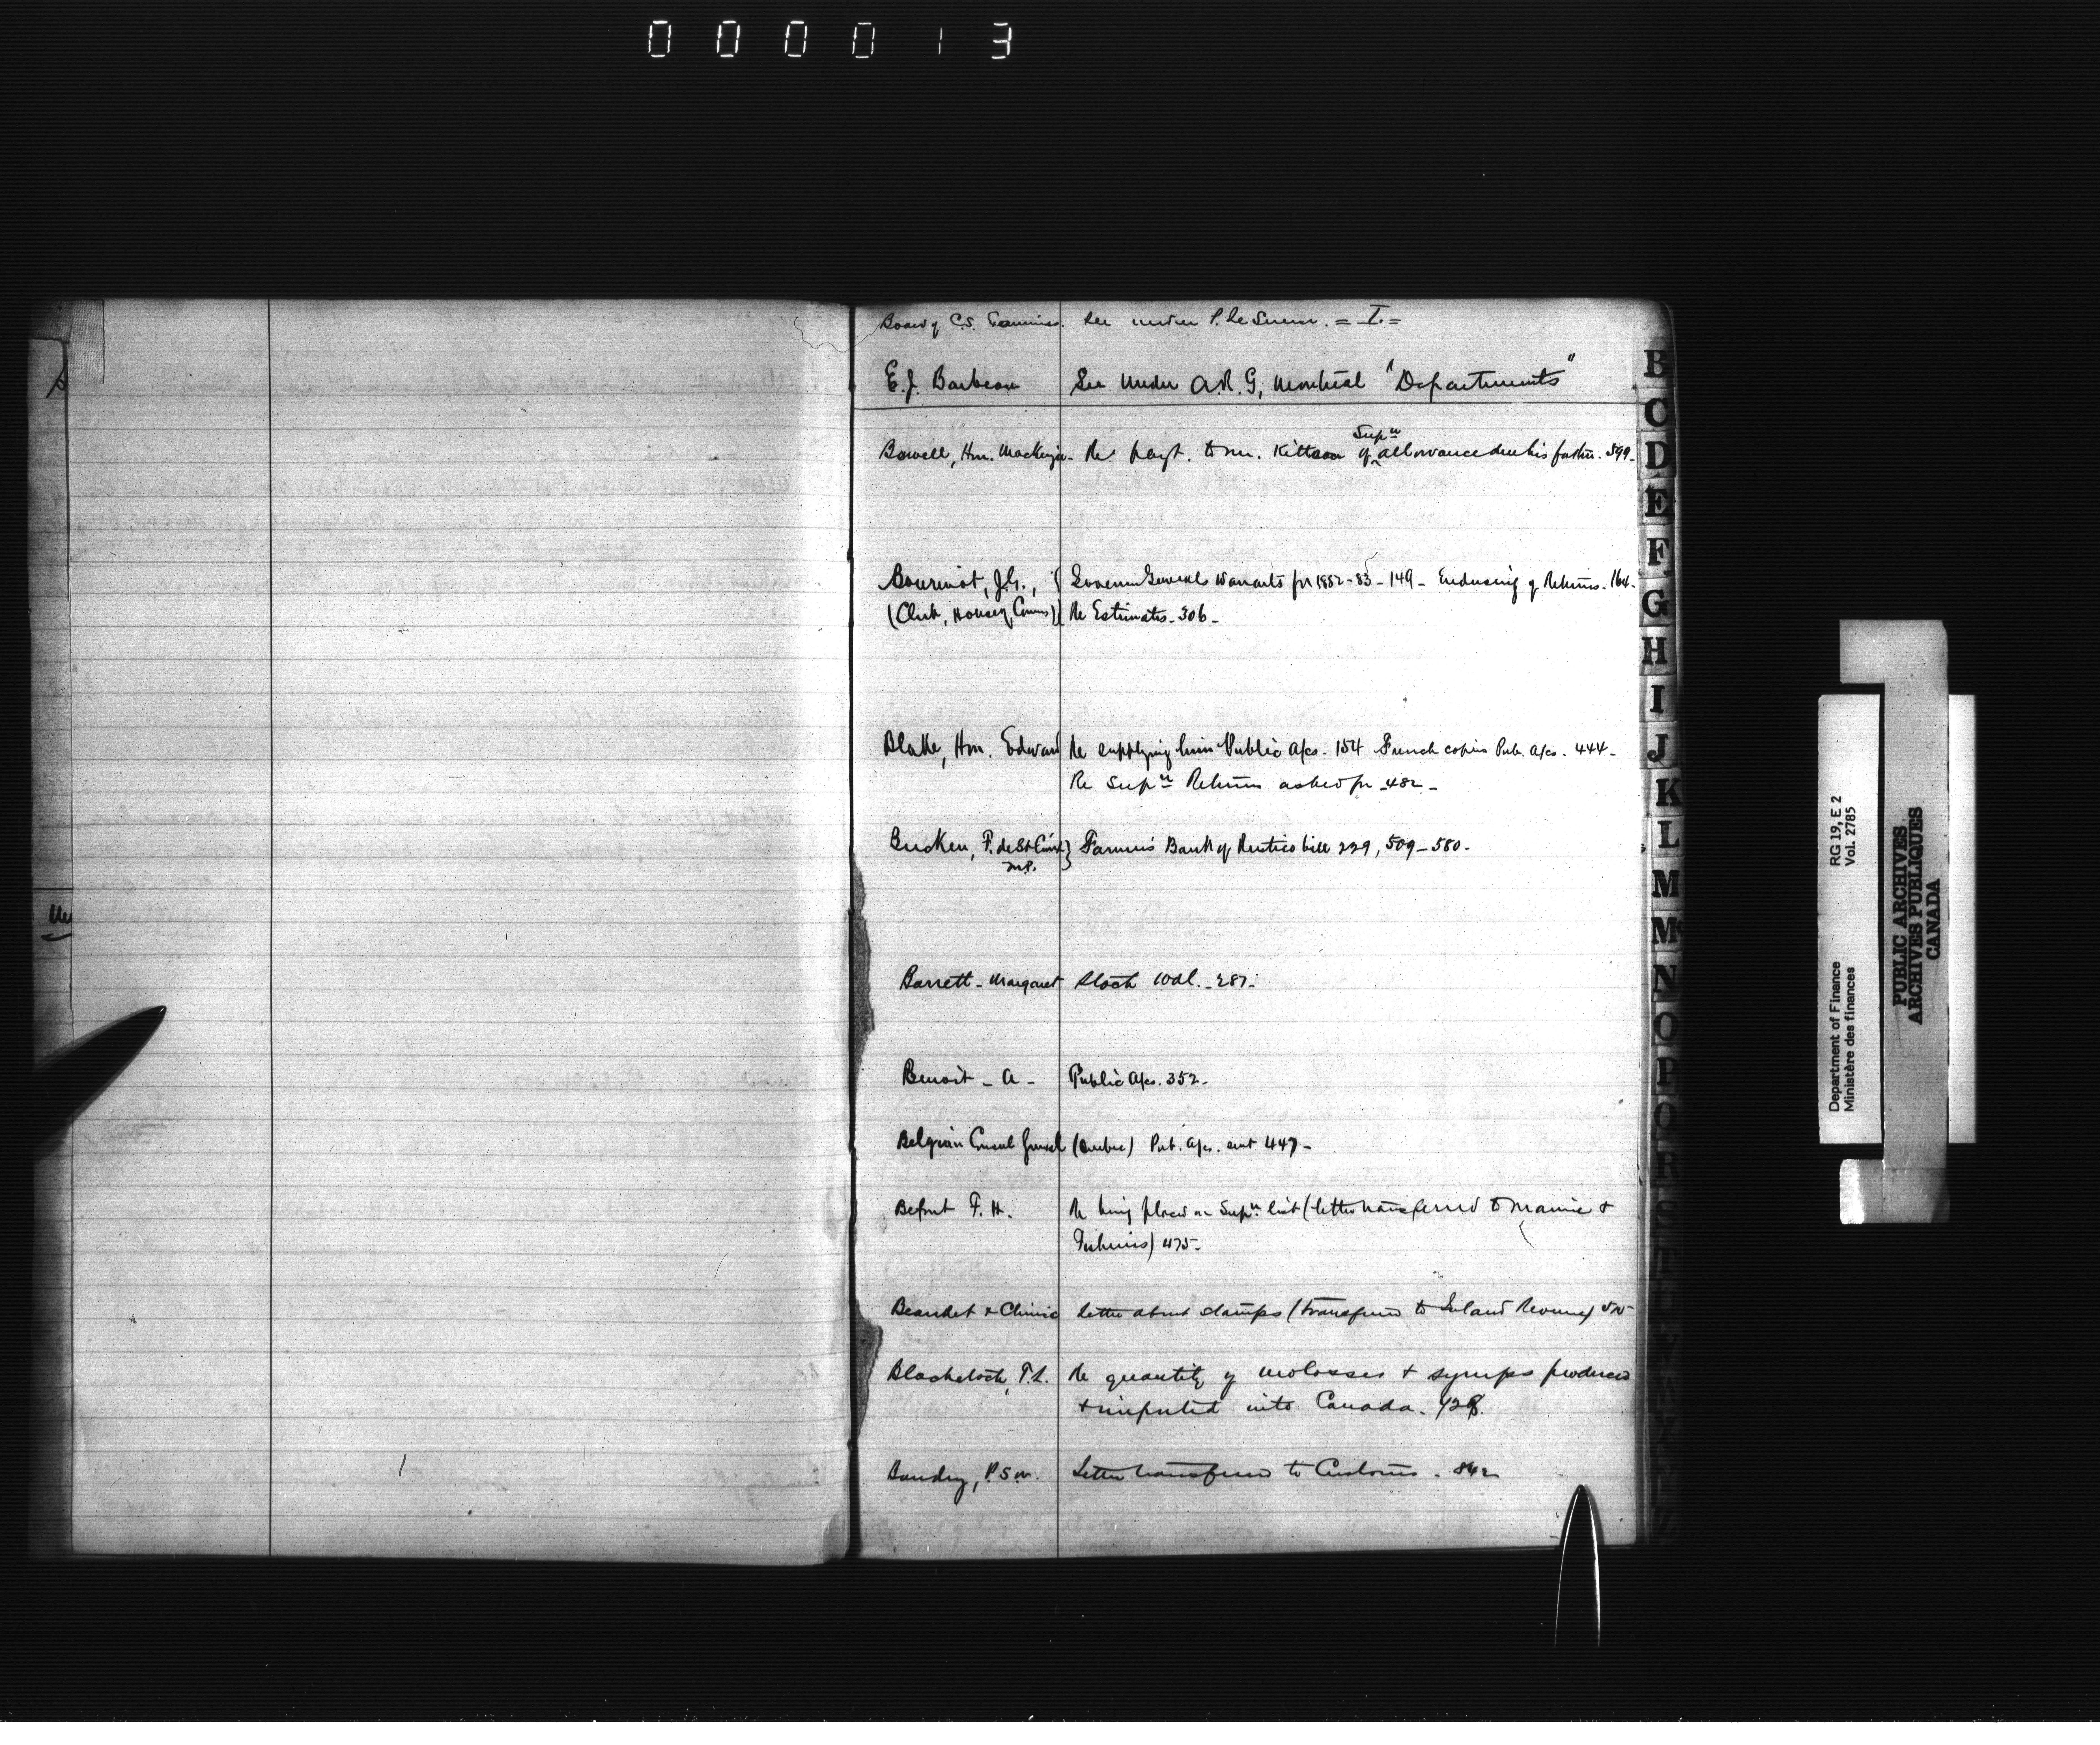 000013
Board of C.S. Examiners. See under P. Le Sueur. = I. =
E.J. Barbeau See under A.R.G, Montreal "Departments"
Bowell, Hon. Mackenzie - Re payt. to Mr. Kittson of Supn allowance due his father. 599 -
Bourinot, J.G., Governor Generals Warrants for 1882-83 - 149 - Enclosing of Returns. 164 -
(Clerk, House of Comms) Re Estimates - 306 -
Blake, Hon. Edward Re supplying him Public A/cs. 154 French copies Pub. A/cs. 444 -
Re Supn Returns asked for - 482 -
Brecken, F. de St Croix Farmers Bank of Rustico bill 229, 509 - 580 -
M.P.
Barrett - Margaret Stock Wdl. - 287 -
Benoit - A - Public A/cs. 352 -
Belgian Consul General (Quebec) Pub. A/cs. sent 447 -
F. H. Re being placed on Supn list (letter transferred to Marine &
Fisheries) 475 -
Beaudet & Chinic Letter about stamps (transferred to Inland Revenue)
Blackelock, T.L. Re quantity of molasses & syrups produced
& imported into Canada.
Baudry, P.S.M. Letter transferred to Customs - 842
B
C
D
E
F
G
H
I
J
K
L
M
Mc
N
O
P
Q
R
S
T
U
V
W
Department of Finance RG 19, E 2
Ministère des finances Vol. 2785
PUBLIC ARCHIVES
ARCHIVES PUBLIQUES
CANADA